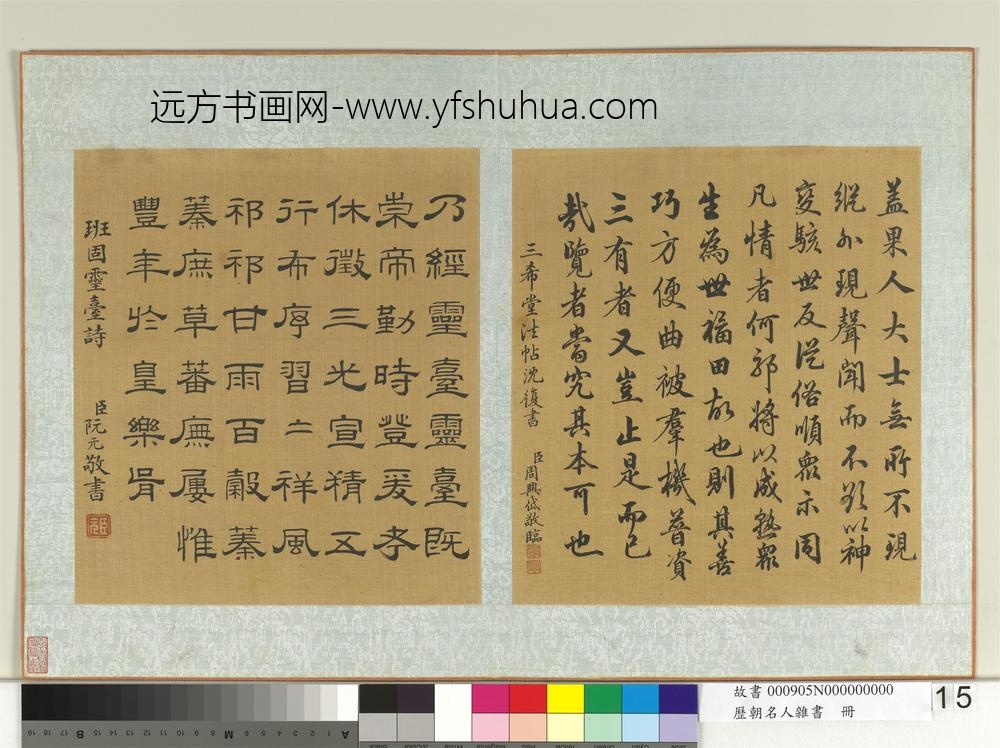 远方书画网-www.yfshuhua.com
盖果人大士無所不現
縱外現聲聞而不以神
變駭世反從俗順眾示同
凡情者何邪將以成熟眾
生為世福田故也則其善
巧方便曲被羣機普資
三有者又豈止是而已
哉覽者當究其本可也
三希堂法帖沈復書
臣周興岱敬臨
乃經靈臺靈臺既
崇帝勤時登爰考
休徵三光宣精五
行布序習〻祥風
祁祁甘雨百穀蓁
蓁庶草蕃廡屢惟
豐年於皇樂胥
班固靈臺詩
臣阮元敬書
故書 000905N000000000
歷朝名人雜書 冊
15